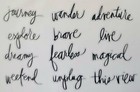 journey wander adventure
explore brave live
dreamy fearless magical
weekend unplug this view